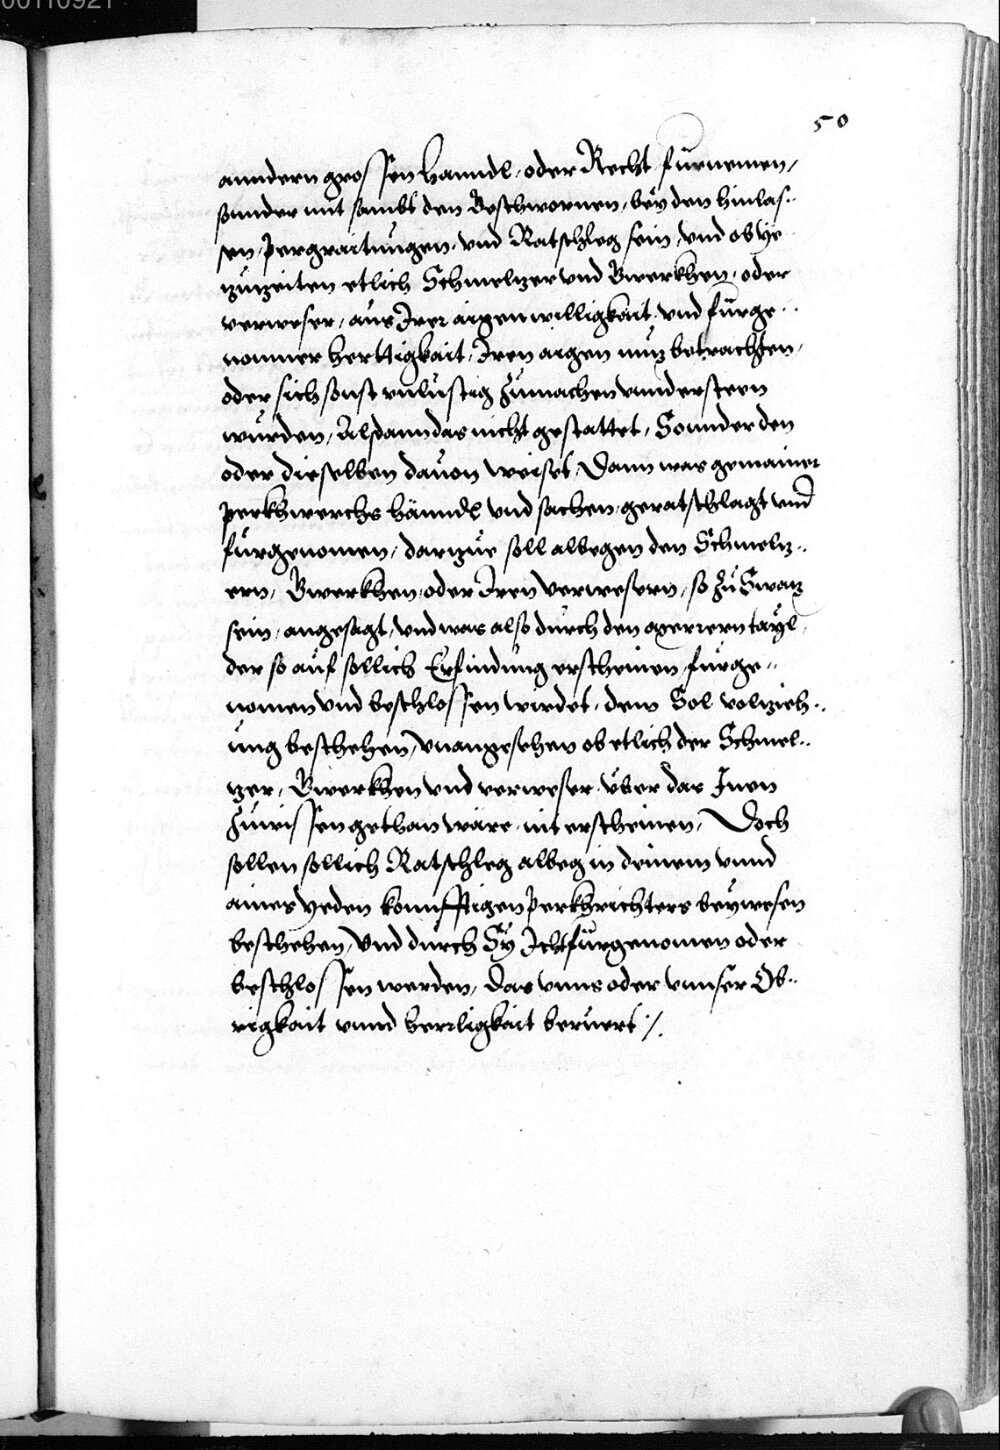 00110921
50
anndern grossen Hanndl, oder Recht fürnemen,
sonnder mit sambt den Beschwornen, bey den hinlas..
sen, Pergraitungen, vnd Ratschleg sein, vnd ob ye
zuzeiten etlich Schmelzer vnd Gwerkhen, oder
verweser, aus Irer aigenwilligkait, vnd fürge..
nomner herttigkait, Iren aigen nuz betrachten,
oder sich sonst vnlustig zumachen vnndersteen
wurden, Alsdann das nicht gestattet, Sonnder den
oder dieselben dauon weiset, Dann was gemainer
Perkhwerchs hänndl vnd sachen, geratschlagt vnd
fürgenomen, darzue soll albegen den Schmelz..
ern, Gwerkhen, oder Iren verwesern, so zu Swaz
sein, angesagt, vnd was also durch den merrern tayl,
der so auf sollich Erfindung erscheinen, fürge..
nomen vnd beschlossen wirdet, dem Sol volzieh..
ung beschehen, vnangesehen ob etlich der Schmel..
zer, Gwerkhen vnd verweser, über das Inen
zuwissen gethan wäre, nit erscheinen, Doch
sollen sollich Ratschleg albeg in deinem vnnd
aines yeden konnfftigen Perkhrichters beywesen
beschehen, vnd durch Sy Icht fürgenomen oder
beschlossen werden, Das vnns oder vnnser Ob..
rigkait vnnd herrligkait beruert /.